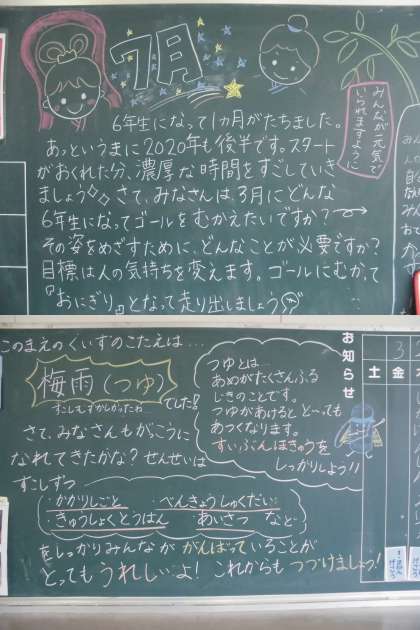 7月
みんなが元気で
いられますように
6年生になって1ヵ月がたちました。
あっというまに2020年も後半です。スタート
がおくれた分、濃厚な時間をすごしていき
ましょう さて、みなさんは、3月にどんな
6年生になってゴールをむかえたいですか?
その姿をめざすために、どんなことが必要ですか?
目標は人の気持ちを変えます。ゴールにむかって
『おにぎり』となって走り出しましょう
このまえのくいずのこたえは…
梅雨(つゆ)
でした!!
すこしむずかしかったね
さて、みなさんもがっこうに
なれてきたかな?せんせいは
すこしずつ
・かかりしごと ・べんきょうしゅくだい
・きゅうしょくとうばん あいさつ など
をしっかりみんなが がんばっていることが
とってもうれしいよ! これからもつづけましょう!
つゆとは…
あめがたくさんふる
じきのことです。
つゆがあけると と〜っても
あつくなります。
すいぶんほきゅうを
しっかりしよう!!
お知らせ
土 金